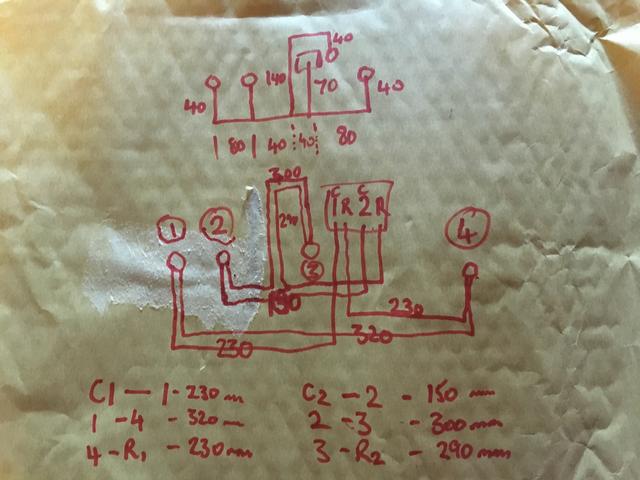 40
40 140 70 40
80 40 40 80
300
C C
1 R 2 R
1 2 4
3
230
150
320
230
C1 - 1 - 230 mm
1 - 4 - 320 m
4 - R1 - 230 mm
C2 - 2 - 150 mm
2 - 3 - 300 mm
3 - R2 - 290 mm